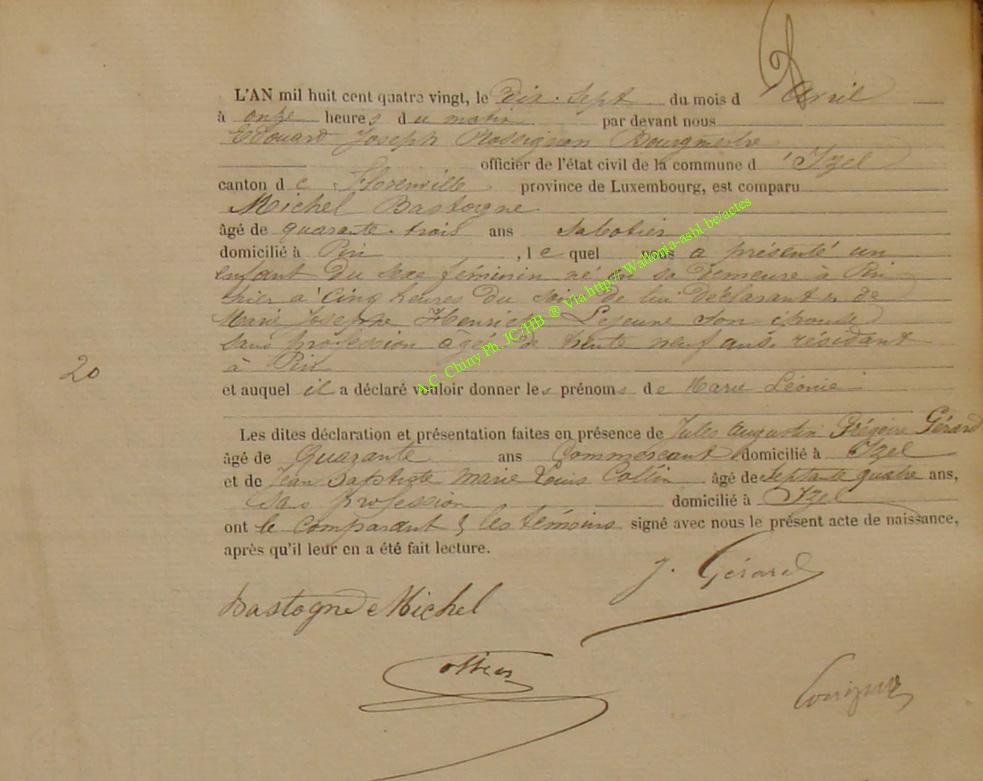 L'AN mil huit cent quatre vingt, le Dix-Sept du mois d'Avril
à onze heures du matin par devant nous
Edouard Joseph Rossignon Bourgmestre
officier de l'état civil de la commune d'Izel
canton de Florenville province de Luxembourg, est comparu
Michel Bastogne
âgé de quarante-trois ans Sabotier
domicilié à Pin, lequel nous a présenté un
enfant du sexe féminin né en sa demeure à Pin
hier à cinq heures du soir de lui déclarant et de
Marie Josephe Lejeune son épouse
sans profession âgée de trente neuf ans, résidant
à Pin
20
et auquel il a déclaré vouloir donner les prénoms de Marie Léonie
Les dites déclaration et présentation faites en présence de Jules Augustin Grégoire Gérard
âgé de Quarante ans Commerçant domicilié à Izel
et de Jean Baptiste Marie Louis Collin âgé de septante quatre ans,
Sans profession domicilié à Izel
ont le comparant & les témoins signé avec nous le présent acte de naissance,
après qu'il leur en a été fait lecture.
J. Gérard
Bastogne Michel
A.C. Chiny Ph. JC/HB ® Via http://Wallonia-asbl.be/actes